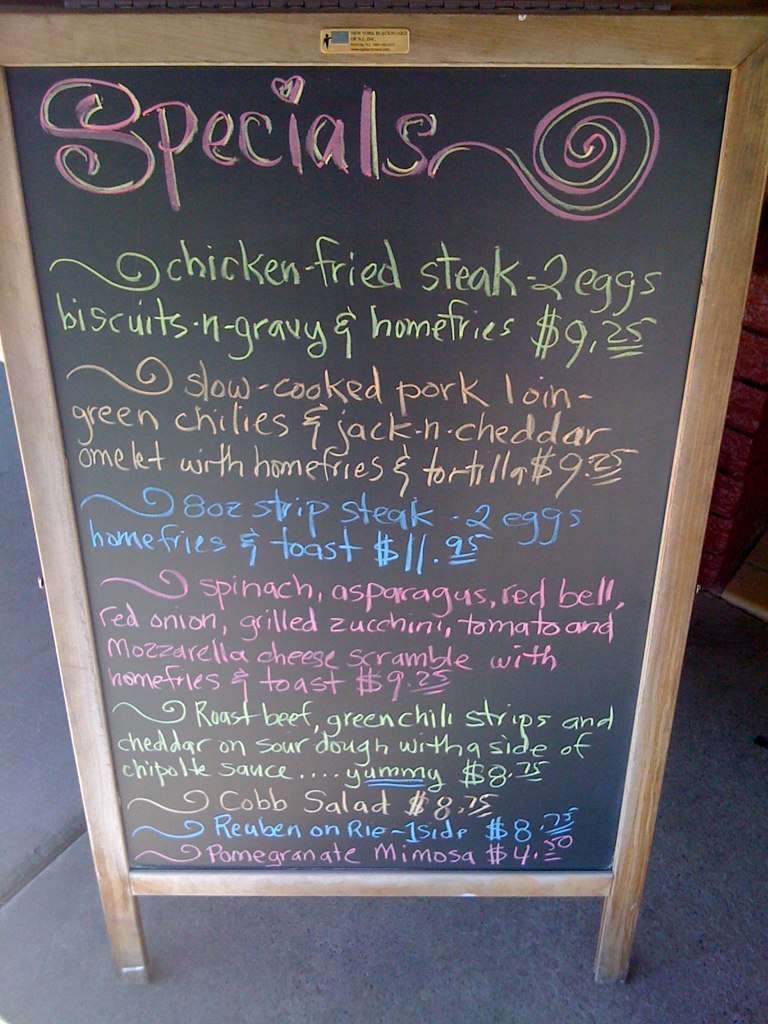 NEW YORK BLACKBOARD
OF N.J., INC.
Specials
chicken-fried steak-2 eggs
biscuits-n-gravy & homefries $9.25
slow-cooked pork loin-
green chilies & jack-n-cheddar
omelet with homefries & tortilla $9.25
8oz strip steak - 2 eggs
homefries & toast $11.95
spinach, asparagus, red bell,
red onion, grilled zucchini, tomato and
mozzarella cheese scramble with
homefries & toast $9.25
Roast beef, green chili strips and
cheddar on sour dough with a side of
chipolte sauce.... yummy $8.75
Cobb Salad $8.75
Reuben on Rie-1side $8.75
Pomegranate Mimosa $4.50